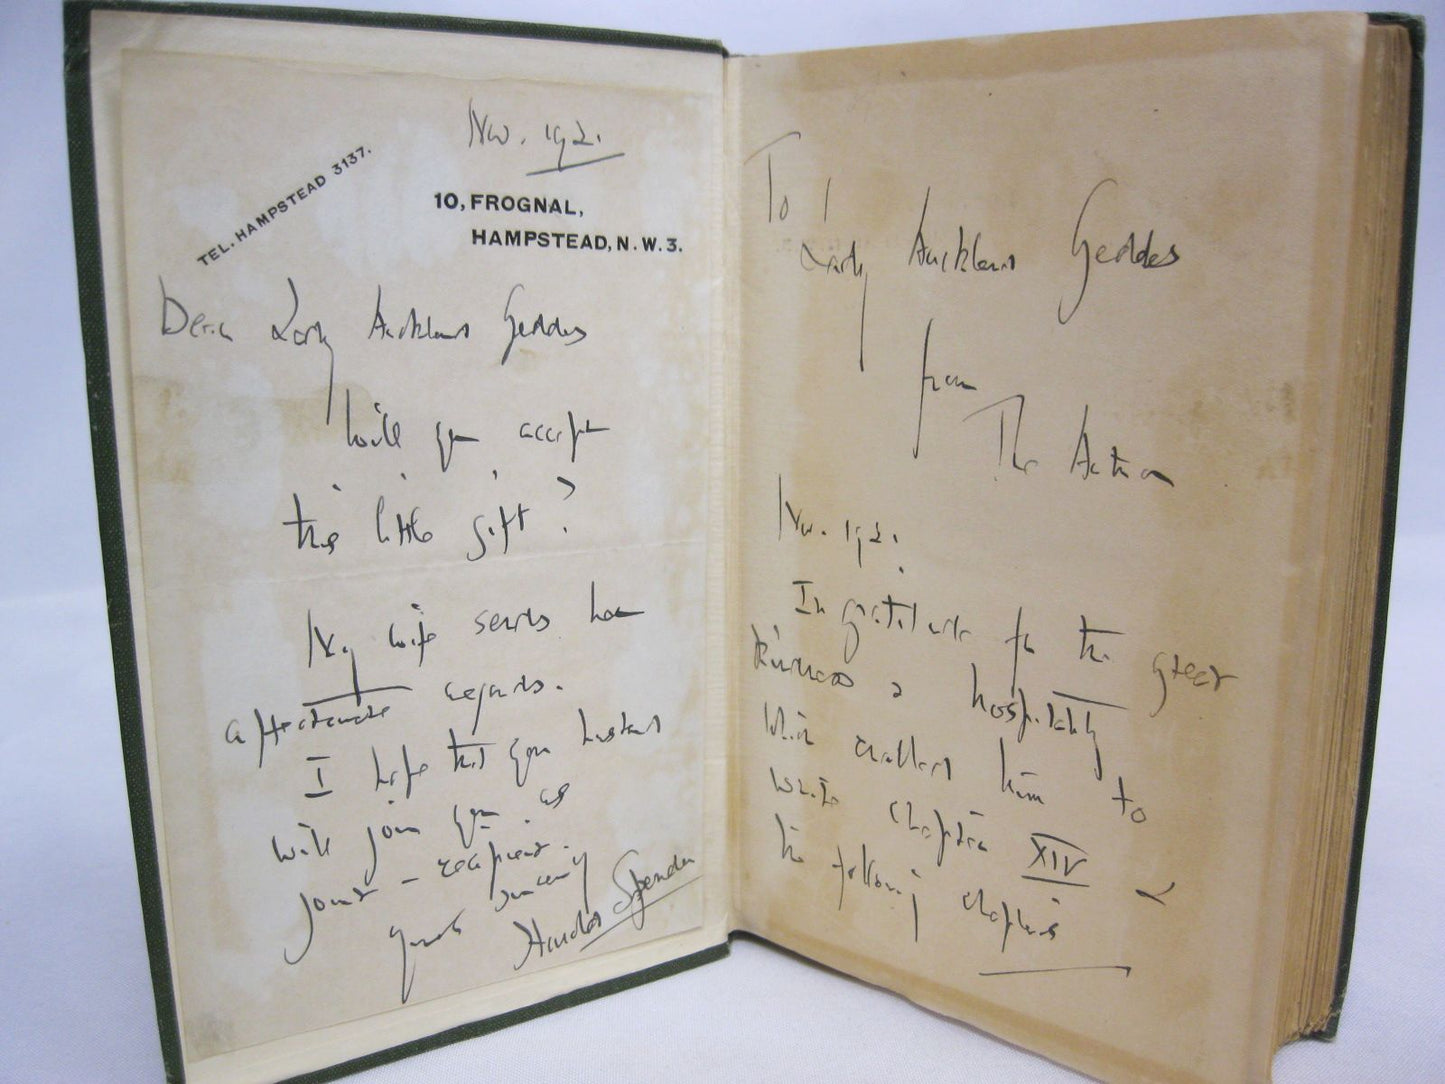 Nov. 1921.
TEL. HAMPSTEAD 3137.
10, FROGNAL,
HAMPSTEAD, N.W.3.
Dear Lady Auckland Geddes
Will you accept
this little gift?
My wife sends her
affectionate regards.
I hope that your husband
will join you as
joint-recipient.
yours sincerely
Harold Spender
To
Lady Auckland Geddes
from
The Author
Nov. 1921.
In gratitude for the great
kindness & hospitality
which enabled him to
write Chapter XIV &
the following chapters